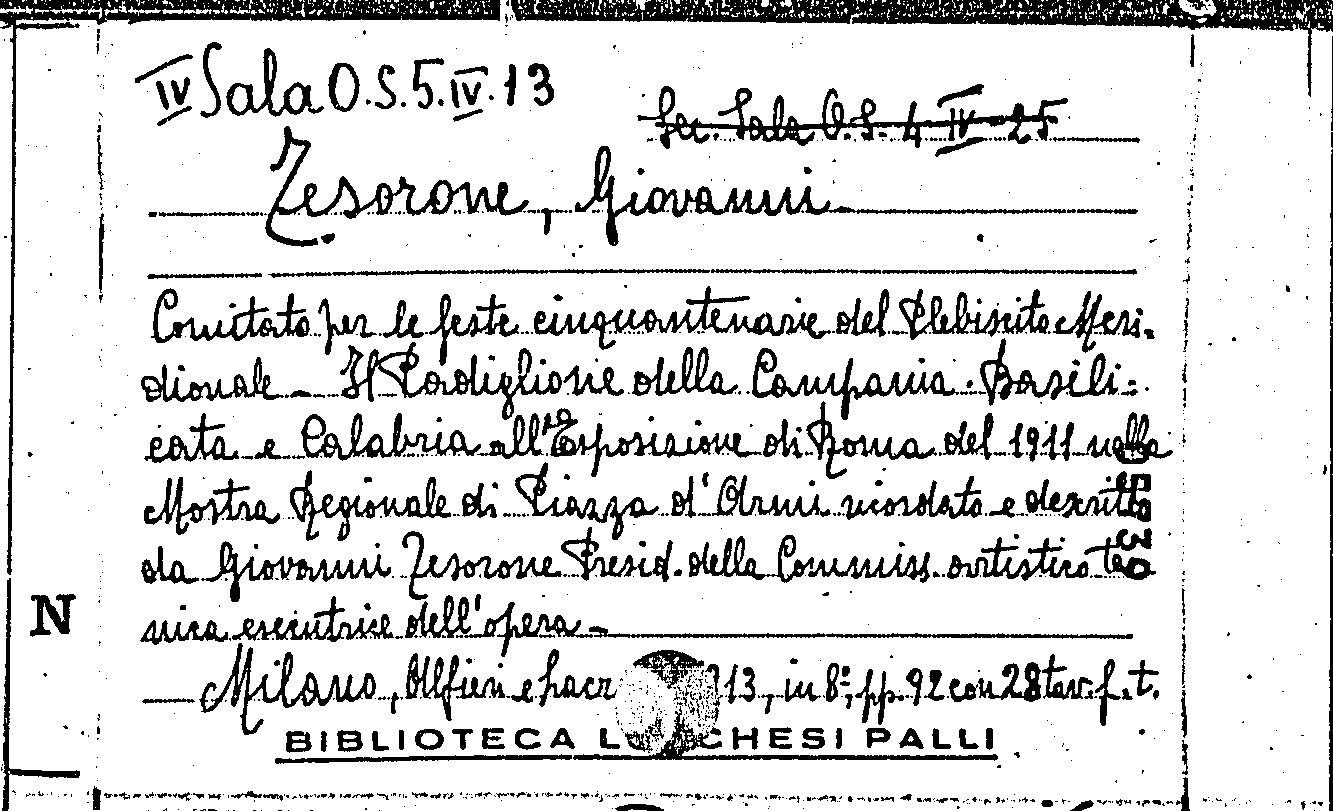 IV Sala O.S. 5. IV. 13
Sec. Sala O.S. 4 IV - 25
Tesorone, Giovanni -
Comitato per le feste cinquantenarie del Plebiscito Meri-
dionale - Il Padiglione della Campania. Basili=
cata e Calabria all'Esposizione di Roma del 1911 nella
Mostra Regionale di Piazza d'Armi ricordato e descritto
da Giovanni Tesorone Presid. della Commiss. artistico tec
nica esecutrice dell'opera -
N
Milano, Alfieri e 13, in 8º, pp. 92 con 28 tav. f. t.
BIBLIOTECA L CHESI PALLI